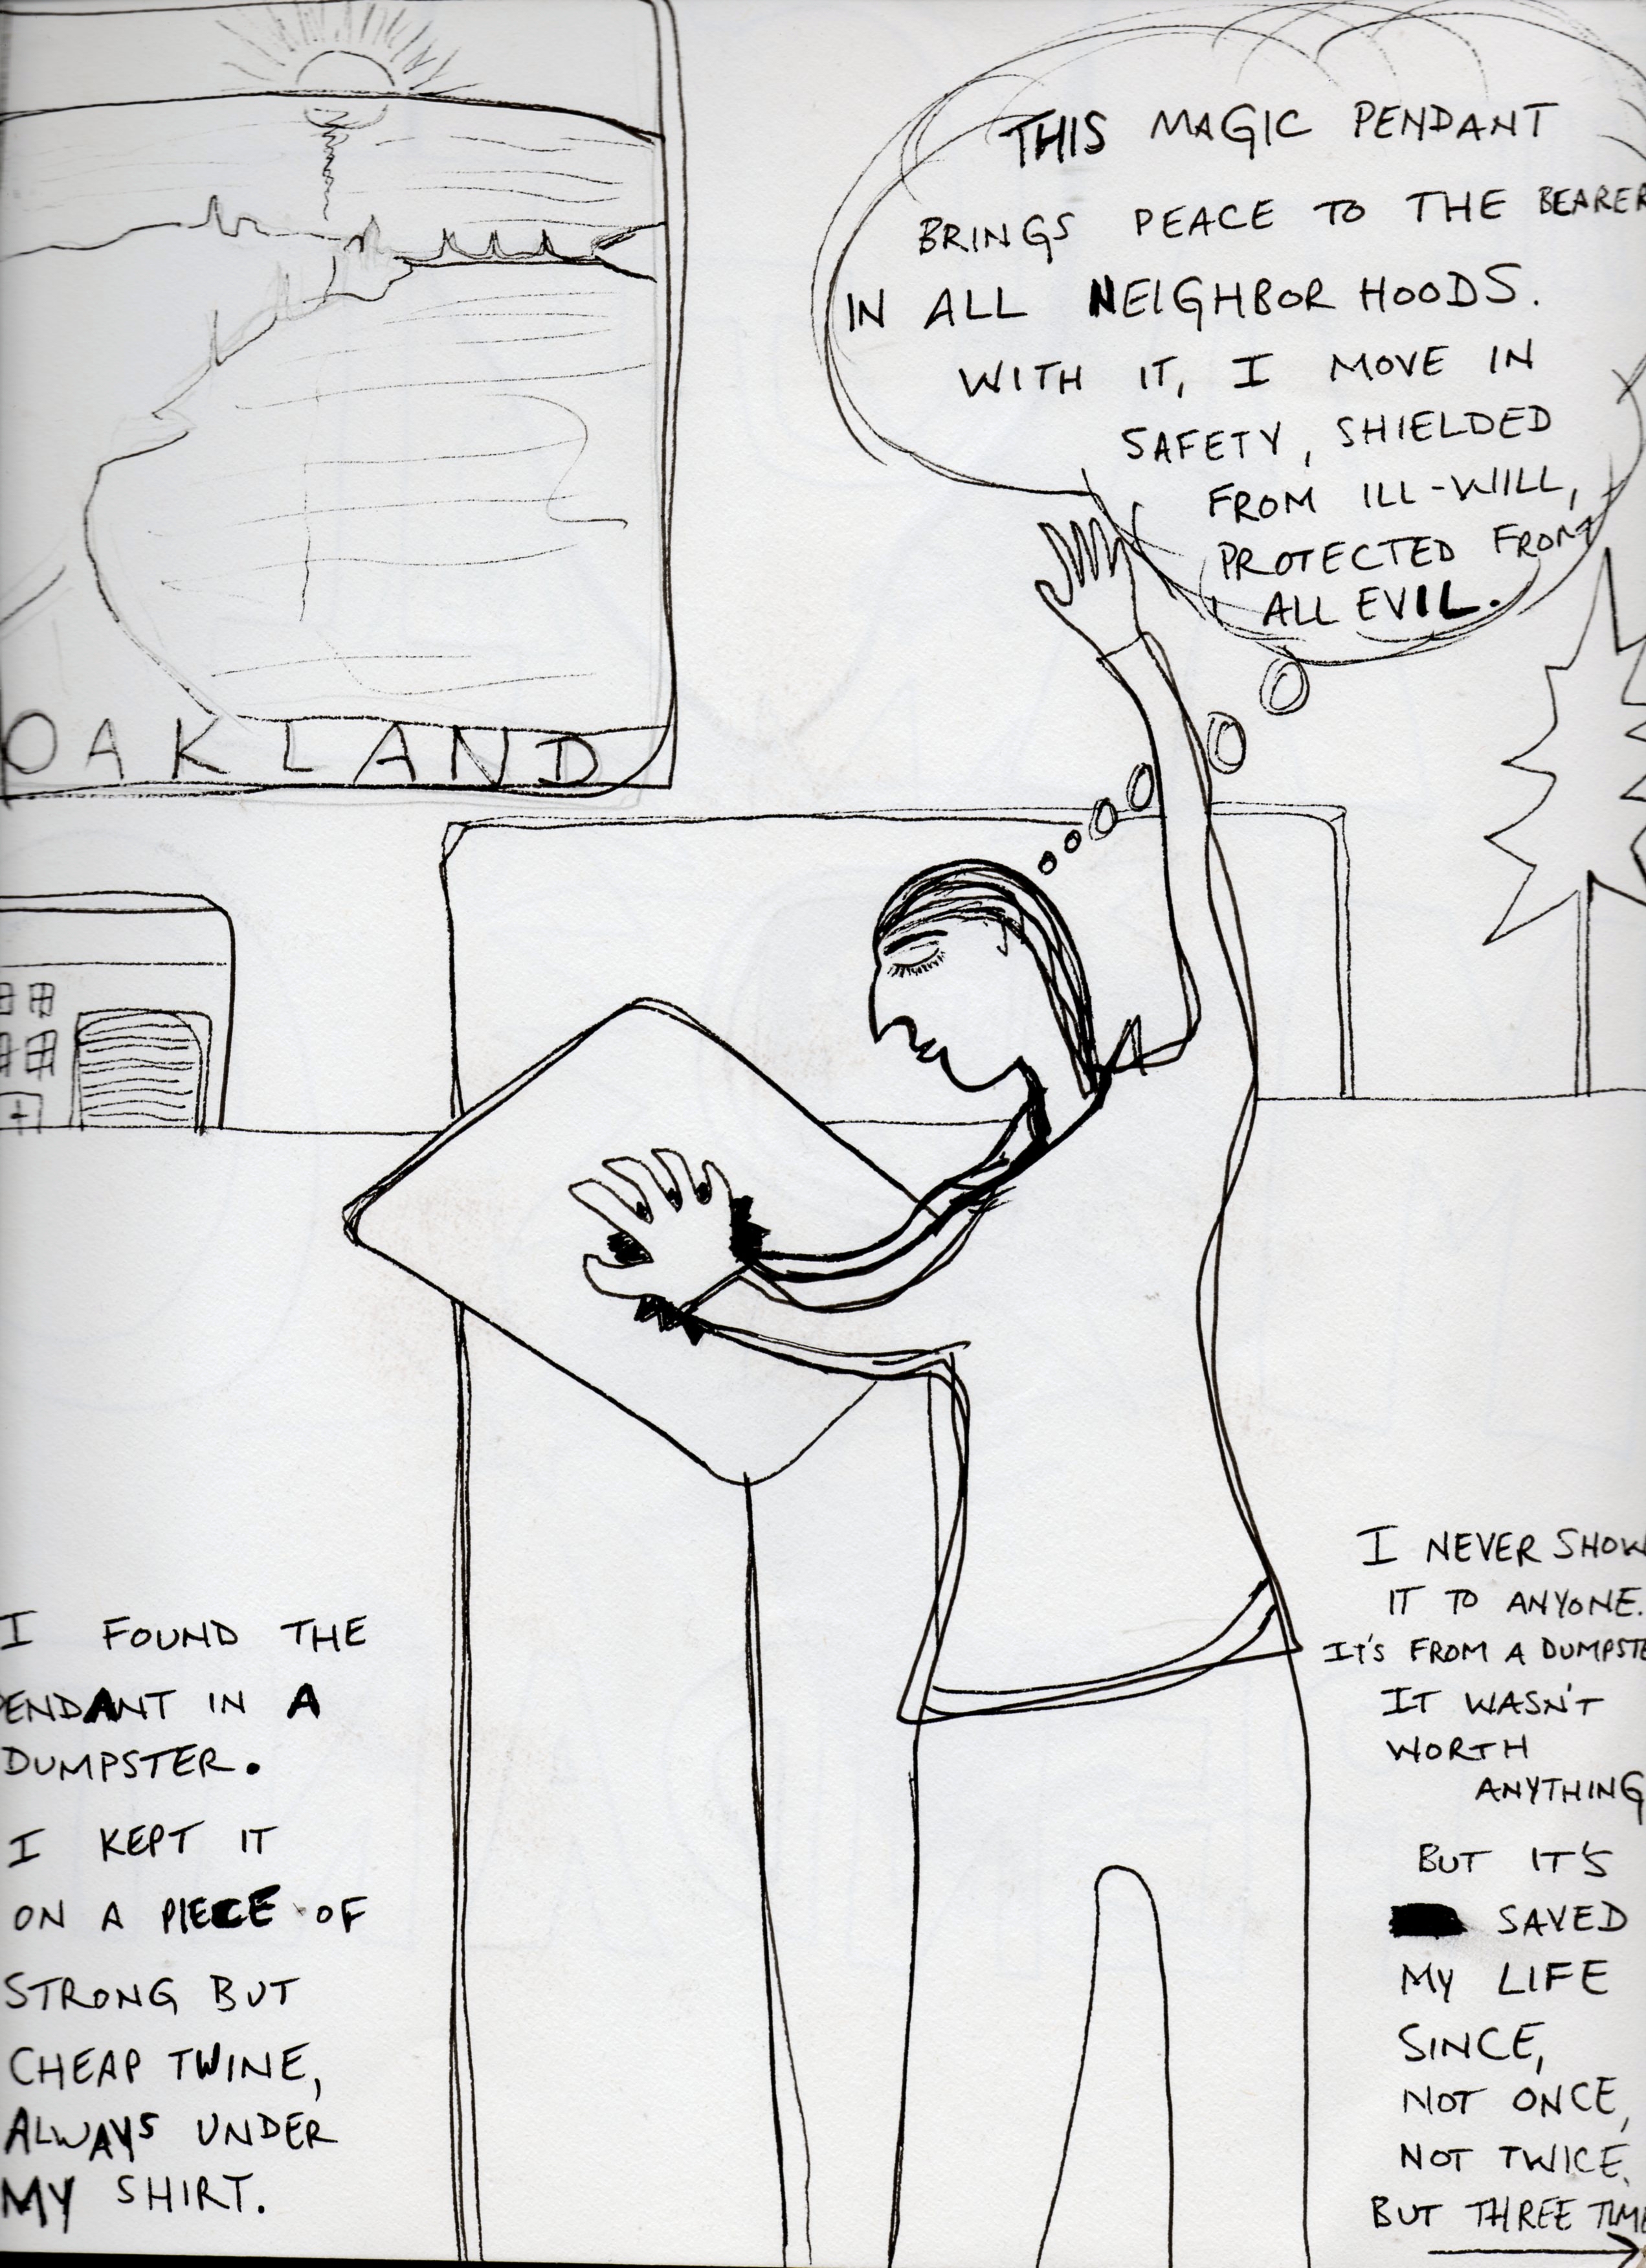 OAKLAND
THIS MAGIC PENDANT
BRINGS PEACE TO THE BEARER
IN ALL NEIGHBOR HOODS.
WITH IT, I MOVE IN
SAFETY, SHIELDED
FROM ILL-WILL,
PROTECTED FROM
ALL EVIL.
I FOUND THE
PENDANT IN A
DUMPSTER.
I KEPT IT
ON A PIECE OF
STRONG BUT
CHEAP TWINE,
ALWAYS UNDER
MY SHIRT.
I NEVER SHOW
IT TO ANYONE.
IT'S FROM A DUMPSTE
IT WASN'T
WORTH
ANYTHING
BUT IT'S
SAVED
MY LIFE
SINCE,
NOT ONCE,
NOT TWICE.
BUT THREE TIME